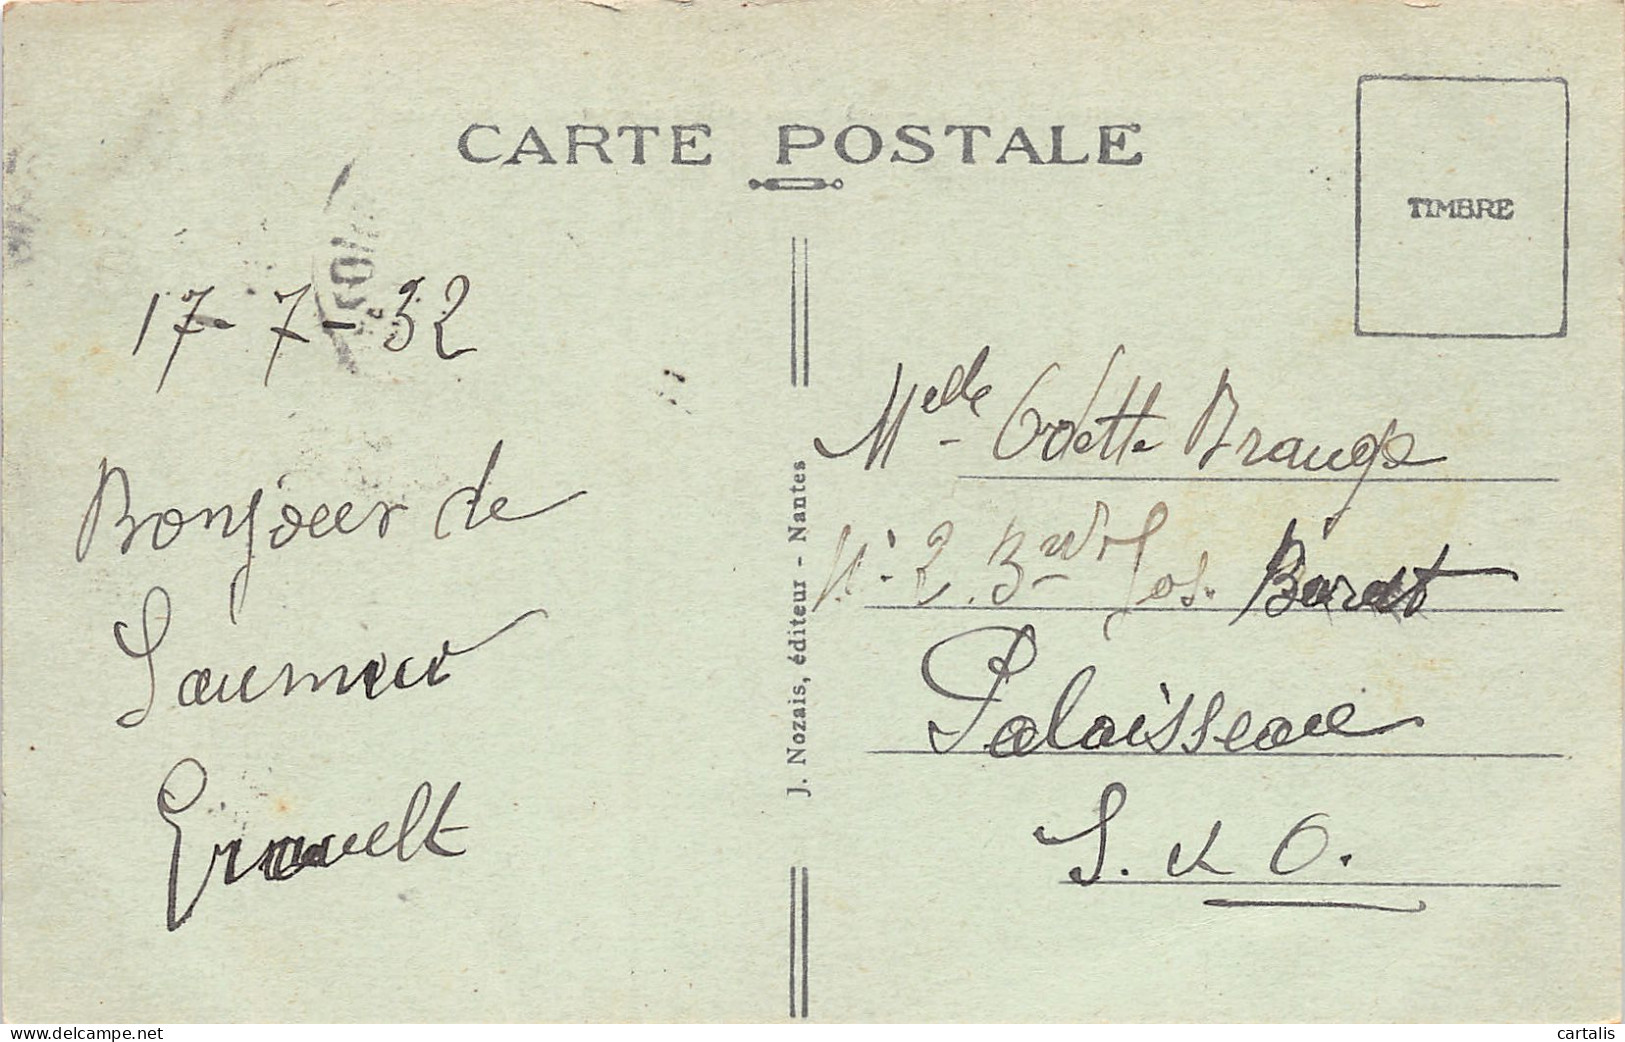 CARTE POSTALE
TIMBRE
17-7-32
Bonjour de
Saumur
J. Nozais, éditeur - Nantes
Melle Odette Brauge
N° 2. Bard Jos. Barat
Palaiseau
S. & O.
cartalis